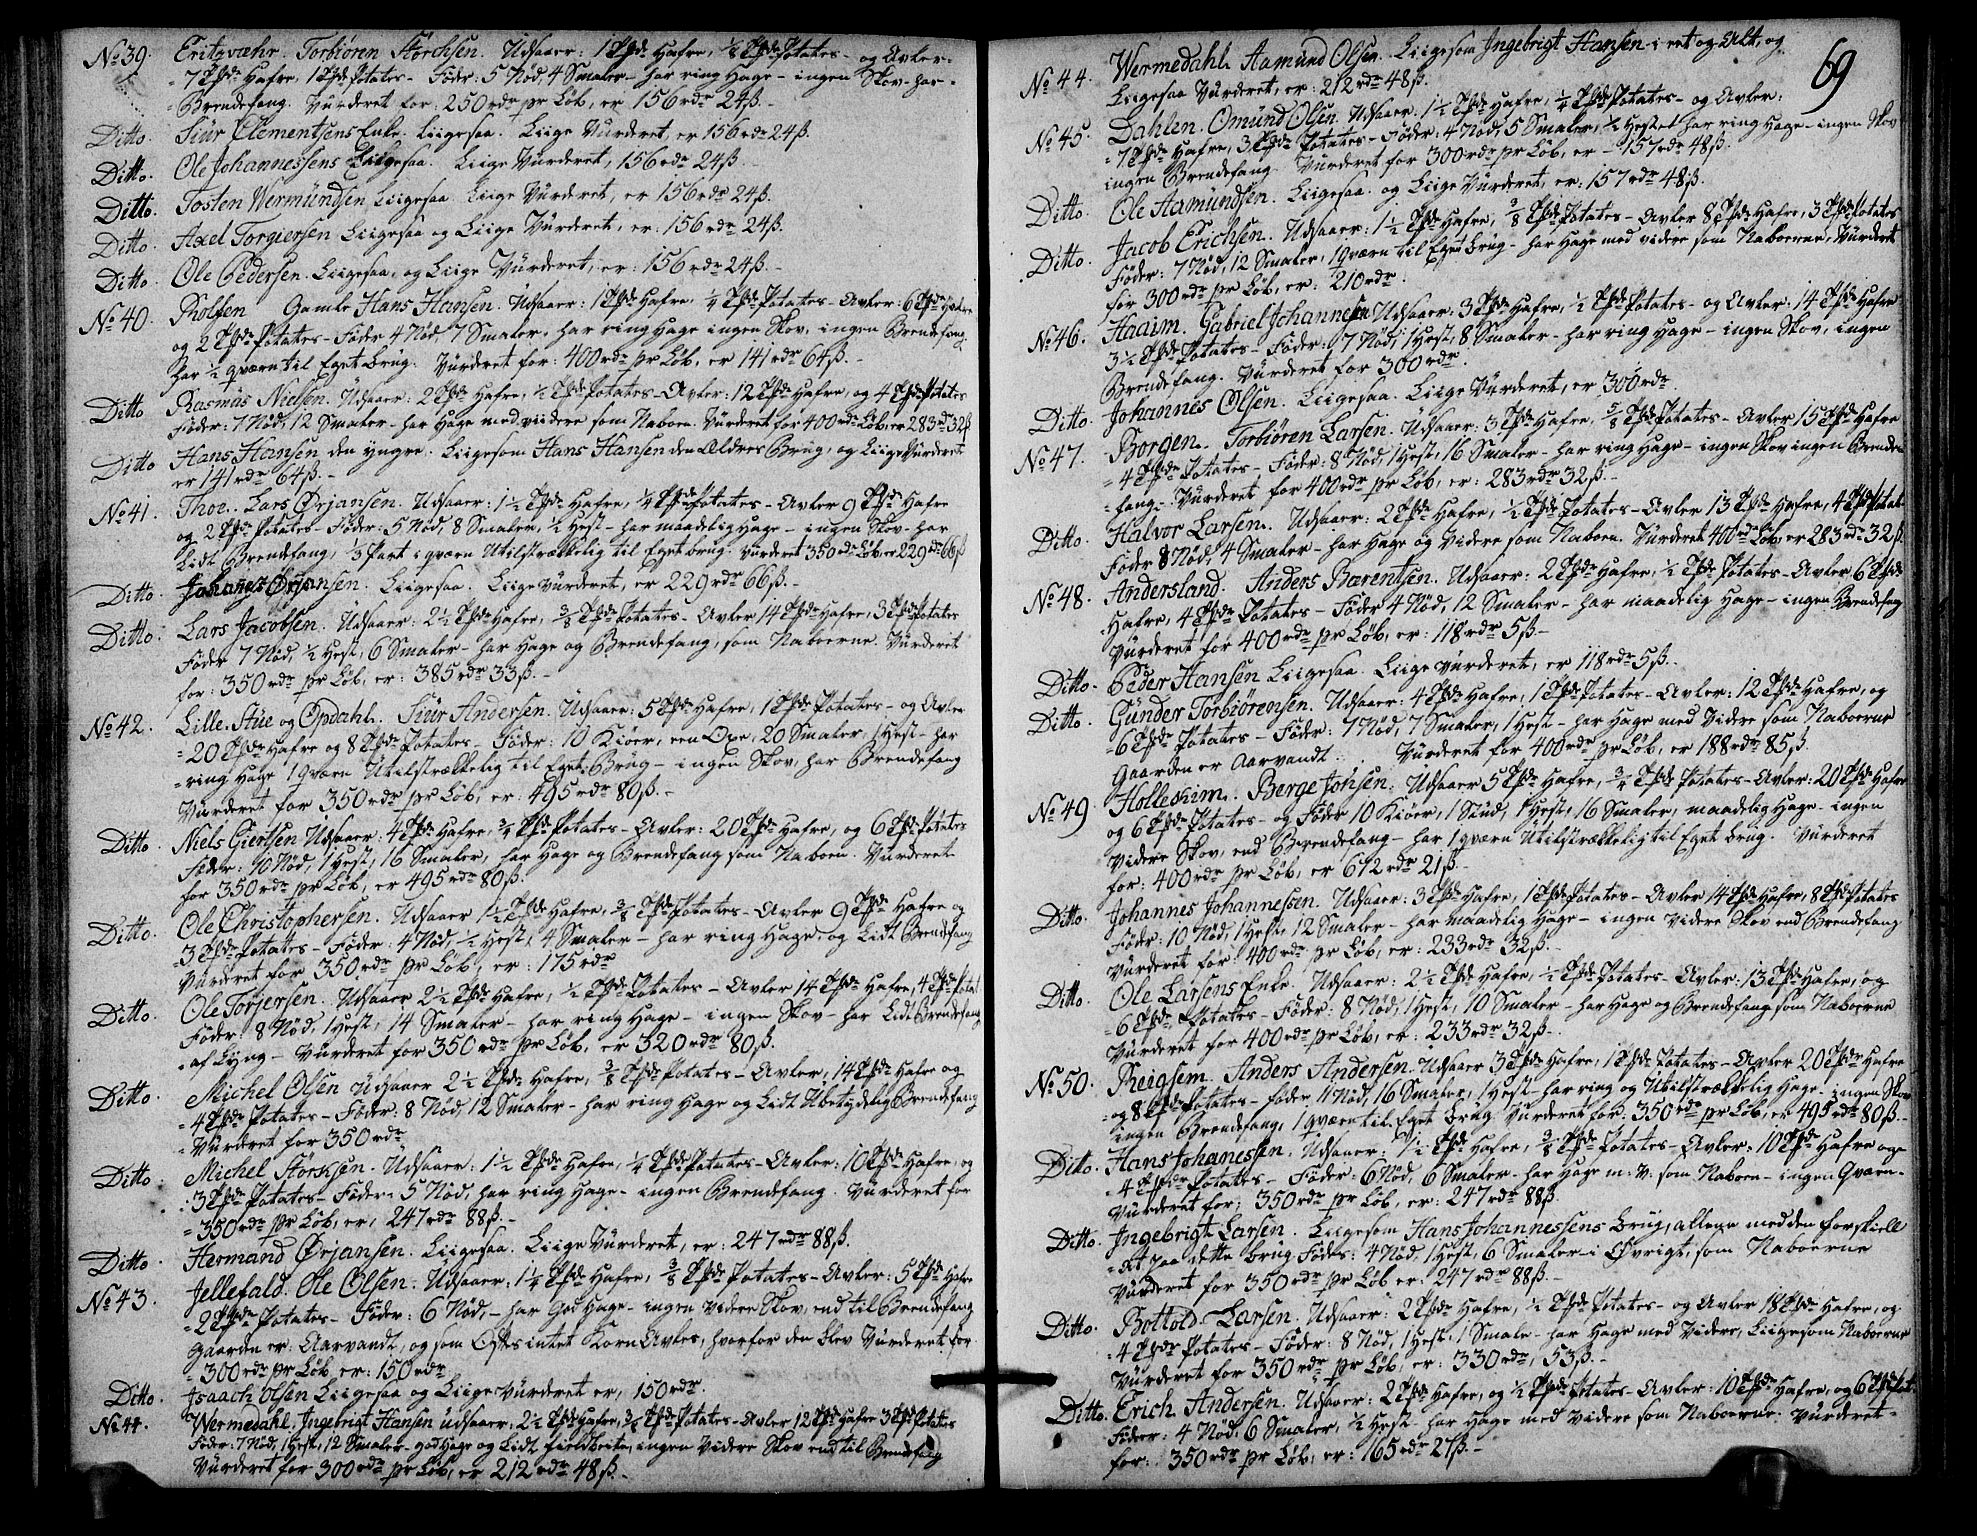 No 39. Fritzvæhr. Torbiøren Störchsen. Udsaaer: 1 Tønde Hafre, 1/4 Tønde Potates - og Avler:
7 Tønde Hafre, 1 Tønde Potates - Föder: 5 Nød, 4 Smaler - har ring Hage - ingen Skov - har
Brendefang. Vurderet for: 250 rdr pr Löb, er 156 rdr 24 ß.
Ditto. Siur Clementsens Enke. Liigesaa. Liige Vurderet, er 156 rdr 24 ß.
Ditto. Ole Johannessens Liigesaa. Liige Vurderet, 156 rdr 24 ß.
Ditto. Tosten Wermundsen Liigesaa Liige Vurderet, er 156 rdr 24 ß.
Ditto. Axel Torgiersen Liigesaa og Liige Vurderet, er: 156 rdr 24 ß.
Ditto. Ole Pedersen. Liigesaa, og Liige Vurderet, er: 156 rdr 24 ß.
No 40. Rolfsn Gamle Hans Hansen. Udsaaer: 1 Tønde Hafre, 1/4 Tønde Potates - Avler: 6 Tønde Hafre
og 2 Tønde Potates - Föder 4 Nød, 7 Smaler, har ring Hage ingen Skov, ingen Brendefang
har 1/2 qværn til Eget brug. Vurderet for: 400 rdr pr Löb, er 141 rdr 64 ß.
Ditto Rasmus Nielsen. Udsaaer: 2 Tønde Hafre, 1/2 Tønde Potates - Avler: 12 Tønde Hafre, og 4 Tønde Potates
Föder: 7 Nød, 12 Smaler - har Hage med viidere som Naboen. Vurderet for 400 rdr Löb, er 283 rd 32 ß
Ditto Hans Hansen den yngre. Liigesom Hans Hansen den Ældres Brug, og Liige Vurderet
er 141 rdr 64 ß.
No 41. Thor. Lars Ørjansen. Udsaaer: 1 1/2 Tønde Hafre, 1/4 Tønde Potates - Avler 9 Tønde Hafre
og 2 Tønde Potates - Föder: 5 Nød, 8 Smaler, 1/2 Hest - har maadelig Hage - ingen Skov - har
Lidt Brendefang, 1/3 Part i qværn Utilstrækkelig til Eget brug. Vurderet 350 rdr Löb er 229 rd 66 ß
Ditto. Johanes Ørjansen. Liigesaa. Liige Vurderet, er 229 rdr 66 ß.
Ditto. Lars Jacobsen. Udsaaer: 2 1/2 Tønde Hafre, 3/8 Tønde Potates - Avler 14 Tønde Hafre, 3 Tønde Potates
Föder 7 Nød, 1/2 Hest, 6 Smaler - har Hage og Brendefang, som Naboerne. Vurderet
for: 350 rdr pr Löb, er: 385 rdr 33 ß.
No 42. Lille Stue og Opdahl. Siur Andersen. Udsaaer: 5 Tønde Hafre, 1 Tønde Potates - og Avler
20 Tønde Hafre og 8 Tønde Potates - Föder: 10 Kiöer, een Oxe, 20 Smaler, 1 Hest - har
ring Hage 1 qværn Utilstrækkelig til Eget Brug - ingen Skov, har Brendefang
Vurderet for 350 rdr pr Löb, er: 495 rdr 80 ß.
Ditto. Niels Giertsen Udsaaer: 4 Tønde Hafre, 3/4 Tønde Potates - Avler: 20 Tønde Hafre, og 6 Tønde Potates
Föder: 10 Nød, 1 Hest, 16 Smaler, har Hage og Brendefang som Naboen. Vurderet
for 350 rdr pr Löb, er 495 rdr 80 ß.
Ditto. Ole Christophersen. Udsaaer 1 1/2 Tønde Hafre, 3/8 Tønde Potates - Avler 9 Tønde Hafre og
3 Tønde Potates - Föder: 4 Nød, 1/2 Hest, 4 Smaler - har ring Hage, og Lidt Brendefang
Vurderet for 350 rdr pr Löb, er: 175 rdr
Ditto. Ole Torjersen. Udsaaer 2 1/2 Tønde Hafre, 1/2 Tønde Potates - Avler 14 Tønde Hafre, 4 Tønde Potat.
Föder: 8 Nød, 1 Hest, 14 Smaler - har ring Hage - ingen Skov - har Lidt Brendefang
af Lyng - Vurderet for 350 rdr pr Löb, er 320 rdr 80 ß.
Ditto. Michel Olsen Udsaaer 2 1/2 Tønde Hafre, 3/8 Tønde Potates - Avler, 14 Tønde Hafre og
4 Tønde Potates - Föder: 8 Nød, 12 Smaler - har ring Hage og Lidt Ubetydelig Brendefang
Vurderet for 350 rdr
Ditto. Michel Störksen. Udsaaer: 1 1/2 Tønde Hafre, 1/4 Tønde Potates - Avler: 10 Tønde Hafre, og
3 Tønde Potates - Föder: 5 Nød, har ring Hage - ingen Brendefang. Vurderet for
350 rdr pr Löb, er, 247 rdr 88 ß.
Ditto. Hermand Ørjansen. Liigesaa. Liige Vurderet, er: 247 rdr 88 ß.
No 43. Jellefald. Ole Olsen. Udsaaer: 1 1/4 Tønde Hafre, 3/8 Tønde Potates - Avler: 5 Tønde Hafre
2 Tønde Potates - Föder: 6 Nød, - har God Hage - ingen Videre Skov, end til Brendefang
Gaarden er Aarvandt, og som Oftes intet Korn Avles, hvorfor den blev Vurderet for
300 rdr pr Löb, er: 150 rdr
Ditto. Isaach Olsen Liigesaa og Liige Vurderet er, 150 rdr.
No 44. Wermedahl. Ingebrigt Hansen udsaaer: 2 1/2 Tønde Hafre, 3/8 Tønde Potates - Avler 12 Tønde Hafre 3 Tønde Potates
Föder: 7 Nød, 1 Hest, 12 Smaler - god Hage og Lidt fieldbeite, ingen Videre Skov end til Brendefang
Vurderet for 300 rdr pr Löb, er 212 rdr 48 ß.
69
No 44. Wermedahl. Aamund Olsen. Liigesom Ingebrigt Hansen i eet og Alt, og
Liigesaa Vurderet, er: 212 rdr 48 ß.
No 45. Dahlen. Omund Olsen. Udsaaer: 1 1/2 Tønde Hafre, 1/4 Tønde Potates - og Avler:
7 Tønde Hafre, 3 Tønde Potates - Föder: 4 Nød, 5 Smaler, 1/2 Hest har ring Hage - ingen Skov
ingen Brendefang. Vurderet for 300 rdr pr Löb, er - 157 rdr 48 ß.
Ditto. Ole Aamundsen. Liigesaa. og Liige Vurderet, er: 157 rdr 48 ß.
Ditto. Jacob Erichsen. Udsaaer: 1 1/2 Tønde Hafre, 3/8 Tønde Potates - Avler 8 Tønde Hafre, 3 Tønde Potates
Föder: 7 Nød, 12 Smaler, 1 qværn til Eget brug - har Hage med videre som Naboerne, Vurderet
for 300 rdr pr Löb, er: 210 rdr.
No 46. Haaim. Gabriel Johannesen Udsaaer: 3 Tønde Hafre, 1/2 Tønde Potates - og Avler: 14 Tønde Hafre
3 1/2 Tønde Potates - Föder: 7 Nød, 1 Hest, 8 Smaler - har ring Hage - ingen Skov, ingen
Brendefang. Vurderet for 300 rdr.
Ditto. Johannes Olsen. Liigesaa. Liige Vurderet, er 300 rdr.
No 47. Borgen. Torbiören Larsen. Udsaaer: 3 Tønde Hafre, 5/8 Tønde Potates - Avler 15 Tønde Hafre
4 Tønde Potates - Föder: 8 Nød, 1 Hest, 16 Smaler - har ring Hage - ingen Skov ingen Brende-
fang - Vurderet for 400 rdr pr Löb, er: 283 rdr 32 ß.
Ditto. Halvor Larsen. Udsaaer: 2 Tønde Hafre, 1/2 Tønde Potates - Avler 13 Tønde Hafre, 4 Tønde Potat.
Föder 8 Nød, 4 Smaler - har Hage og Videre som Naboen. Vurderet 400 rdr Löb er 283 rdr 32 ß.
No 48. Andersland. Anders Barentsen. Udsaaer: 2 Tønde Hafre, 1/2 Tønde Potates - Avler 6 Tønde
Hafre, 4 Tønde Potates - Föder 4 Nød, 12 Smaler - har maadelig Hage - ingen Brendefang
Vurderet for 400 rdr pr Löb, er: 118 rdr 5 ß.
Ditto. Peder Hansen Liigesaa. Liige Vurderet, er 118 rdr 5 ß.
Ditto. Gunder Torbiörensen. Udsaaer: 4 Tønde Hafre, 1 Tønde Potates - Avler: 12 Tønde Hafre, og
6 Tønde Potates - Föder: 7 Nød, 7 Smaler, 1 Hest - har Hage med Videre som Naboerne
Gaarden er Aarvandt. Vurderet for 400 rdr pr Löb, er 188 rdr 85 ß.
No 49 Holleim. Berge Johsen. Udsaaer 5 Tønde Hafre, 3/4 Tønde Potates - Avler: 20 Tønde Hafre
og 6 Tønde Potates - og Föder 10 Kiöer, 1 Stud, 1 Hest, 16 Smaler, maadelig Hage - ingen
Videre Skov, end Brendefang - har 1 qværn Utilstrækkelig til Eget brug. Vurderet
for: 400 rdr pr Löb, er 612 rdr 21 ß.
Ditto. Johannes Johannessen. Udsaaer: 3 Tønde Hafre, 1 Tønde Potates - Avler 14 Tønde Hafre, 8 Tønde Potates
Föder: 10 Nød, 1 Hest, 12 Smaler - har maadelig Hage - ingen Videre Skov end Brendefang
Vurderet for: 400 rdr pr Löb, er: 233 rdr 32 ß.
Ditto. Ole Larsens Enke. Udsaaer: 2 1/2 Tønde Hafre, 1/2 Tønde Potates - Avler: 13 Tønde Hafre, og
6 Tønde Potates - Föder: 8 Nød, 1 Hest, 10 Smaler - har Hage og Brendefang som Naboerne
Vurderet for 400 rdr pr Löb, er: 233 rdr 32 ß.
No 50. Reigsem. Anders Andersen. Udsaaer 3 Tønde Hafre, 1 Tønde Potates - Avler 20 Tønde Hafre
og 8 Tønde Potates - föder 11 Nød, 16 Smaler, 1 Hest - har ring og Utilstrækkelig Hage - ingen Skov
ingen Brendefang, 1 qværn til Eget brug Vurderet for: 350 rdr pr Löb, er 495 rdr 80 ß.
Ditto. Hans Johanessen. Udsaaer: 1 1/2 Tønde Hafre, 3/8 Tønde Potates - Avler: 10 Tønde Hafre og
4 Tønde Potates - Föder: 6 Nød, 6 Smaler - har Hage m: V: som Naboen - ingen Qværn
Vurderet for, 350 rdr pr Löb, er: 247 rdr 88 ß.
Ditto. Ingebrigt Larsen. Liigesom Hans Johannessens brug, allene med den forskiell
at paa dette brug Födes: 4 Nød, 1 Hest, 6 Smaler i Øvrigt, som Naboerne
Vurderet for 350 rdr pr Löb er: 247 rdr 88 ß.
Ditto. Bottold Larsen. Udsaaer: 2 Tønde Hafre, 1/2 Tønde Potates - og Avler 18 Tønde Hafre, og
4 Tønde Potates - Föder: 8 Nød, 1 Hest, 1 Smale - har Hage med Videre, Liigesom Naboerne
Vurderet for 350 rdr pr Löb, er: 330 rdr, 53 ß.
Ditto. Erich Andersen. Udsaaer: 2 Tønde Hafre, og 1/2 Tønde Potates - Avler: 10 Tønde Hafre, og 6 Tønde Potat.
Föder: 4 Nød, 6 Smaler, 1/2 Hest - har Hage med Videre som Naboerne. Vurderet
for: 350 rdr pr Löb, er: 165 rdr 27 ß.